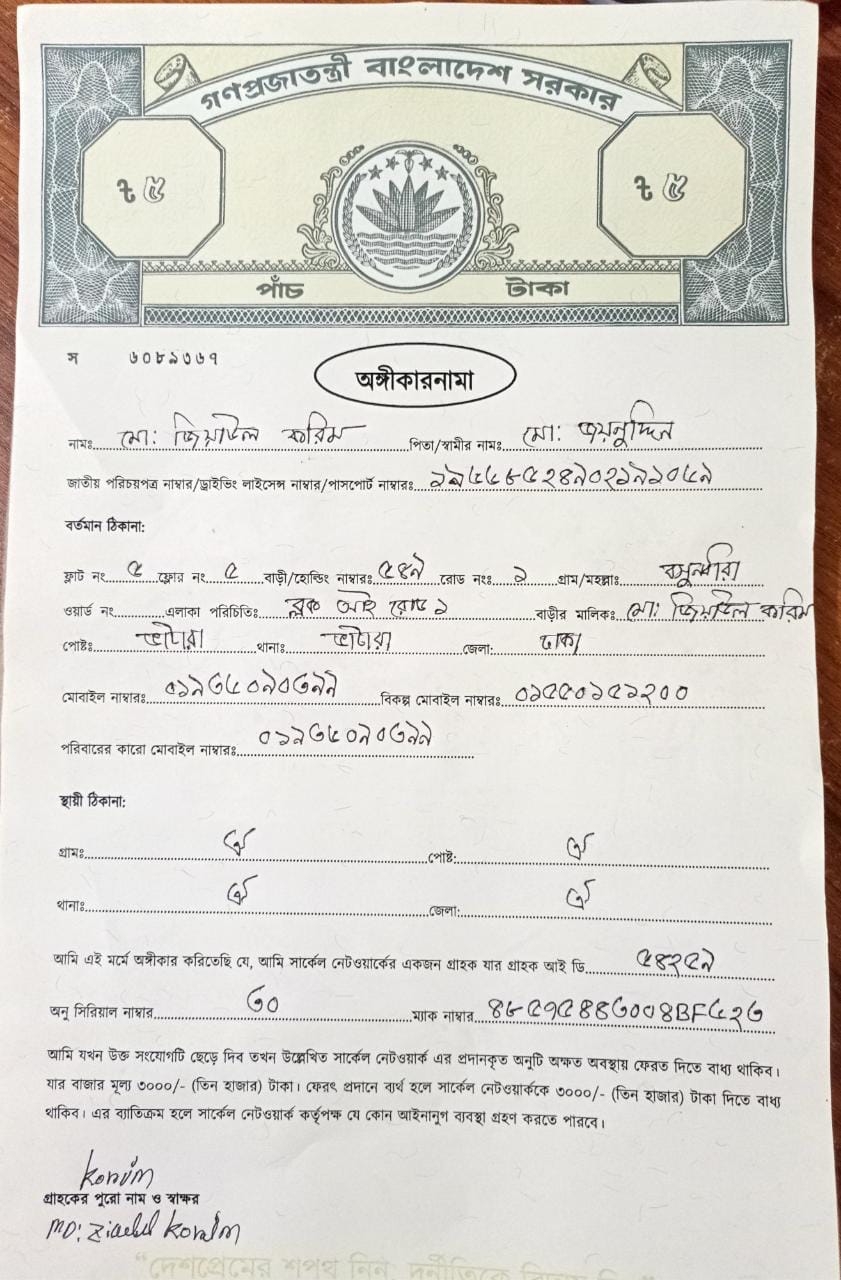 গণপ্রজাতন্ত্রী বাংলাদেশ সরকার
৳ ৫ ৳ ৫
পাঁচ টাকা
স ৬০৮৯৩৬৭
অঙ্গীকারনামা
নামঃ মো: জিয়াউল করিম পিতা/স্বামীর নামঃ মো: জয়নুদ্দিন
জাতীয় পরিচয়পত্র নাম্বার/ড্রাইভিং লাইসেন্স নাম্বার/পাসপোর্ট নাম্বারঃ
বর্তমান ঠিকানা:
ফ্লাট নং ৫ ফ্লোর নং ৫ বাড়ী/হোল্ডিং নাম্বারঃ ৫৪৯ রোড নংঃ ১ গ্রাম/মহল্লাঃ বসুন্ধরা
ওয়ার্ড নং এলাকা পরিচিতিঃ ব্লক আই রোড ১ বাড়ীর মালিক: মো: জিয়াউল করিম
পোষ্টঃ ভাটারা থানাঃ ভাটারা জেলা: ঢাকা
মোবাইল নাম্বারঃ ০১৯৩৬০৯০৩৯৯ বিকল্প মোবাইল নাম্বারঃ ০১৫৫০১৫১২০০
পরিবারের কারো মোবাইল নাম্বারঃ ০১৯৩৬০৯০৩৯৯
স্থায়ী ঠিকানা:
গ্রামঃ ঐ পোষ্ট: ঐ
থানাঃ ঐ জেলা: ঐ
আমি এই মর্মে অঙ্গীকার করিতেছি যে, আমি সার্কেল নেটওয়ার্কের একজন গ্রাহক যার গ্রাহক আই ডি ৫৪২৫৯
অনু সিরিয়াল নাম্বার ৩০ ম্যাক নাম্বার
আমি যখন উক্ত সংযোগটি ছেড়ে দিব তখন উল্লেখিত সার্কেল নেটওয়ার্ক এর প্রদানকৃত অনুটি অক্ষত অবস্থায় ফেরত দিতে বাধ্য থাকিব।
যার বাজার মূল্য ৩০০০/- (তিন হাজার) টাকা। ফেরৎ প্রদানে ব্যর্থ হলে সার্কেল নেটওয়ার্ককে ৩০০০/- (তিন হাজার) টাকা দিতে বাধ্য
থাকিব। এর ব্যতিক্রম হলে সার্কেল নেটওয়ার্ক কর্তৃপক্ষ যে কোন আইনানুগ ব্যবস্থা গ্রহণ করতে পারবে।
Korim
গ্রাহকের পুরো নাম ও স্বাক্ষর
MD: Ziaebul Korim
"দেশপ্রেমের শপথ নিন, দুর্নীতিকে বিদায় দিন"